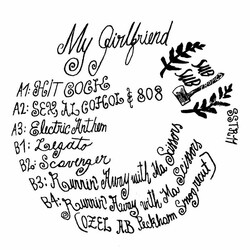 My Girlfriend
A1: SHIT COCK
A2: SEX, ALCOHOL & 808
A3: Electric Anthem
B1: Legato
B2: Scavenger
B3: Runnin' Away with Ma Scissors
B4: Runnin' Away with Ma Scissors
(OZEL AB Peckham Snog